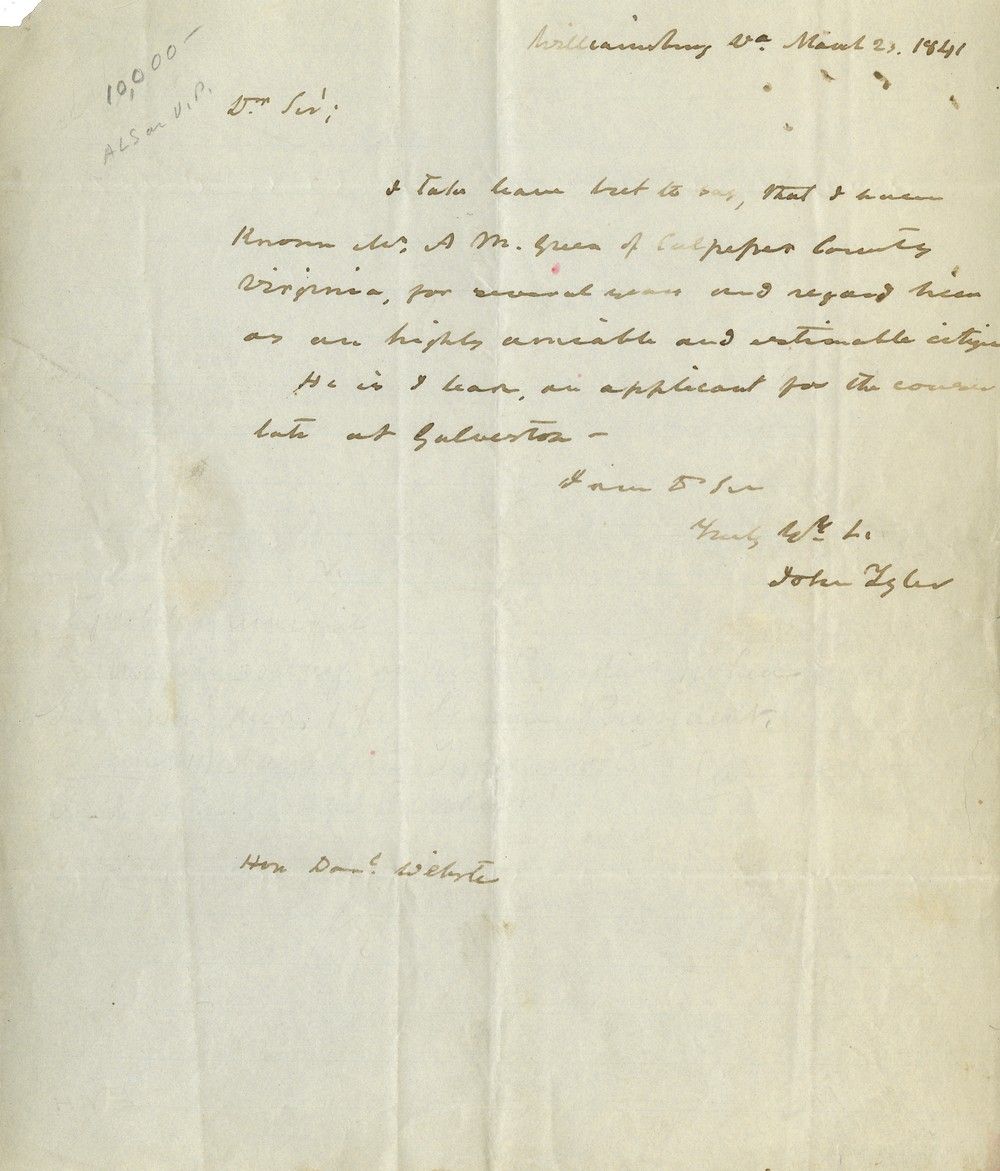 10,000-
ALS as V.P.
Williamsburg Va March 23. 1841
Dr Sir;
I take leave but to say, that I have
Known Mr. A M. Green of Culpeper County
Virginia, for several years and regard him
as an highly amiable and estimable citizen
He is I learn, an applicant for the consu
late at Galveston -
I am Dr Sir
Truly Yrs &c
John Tyler
Hon Danl. Webster